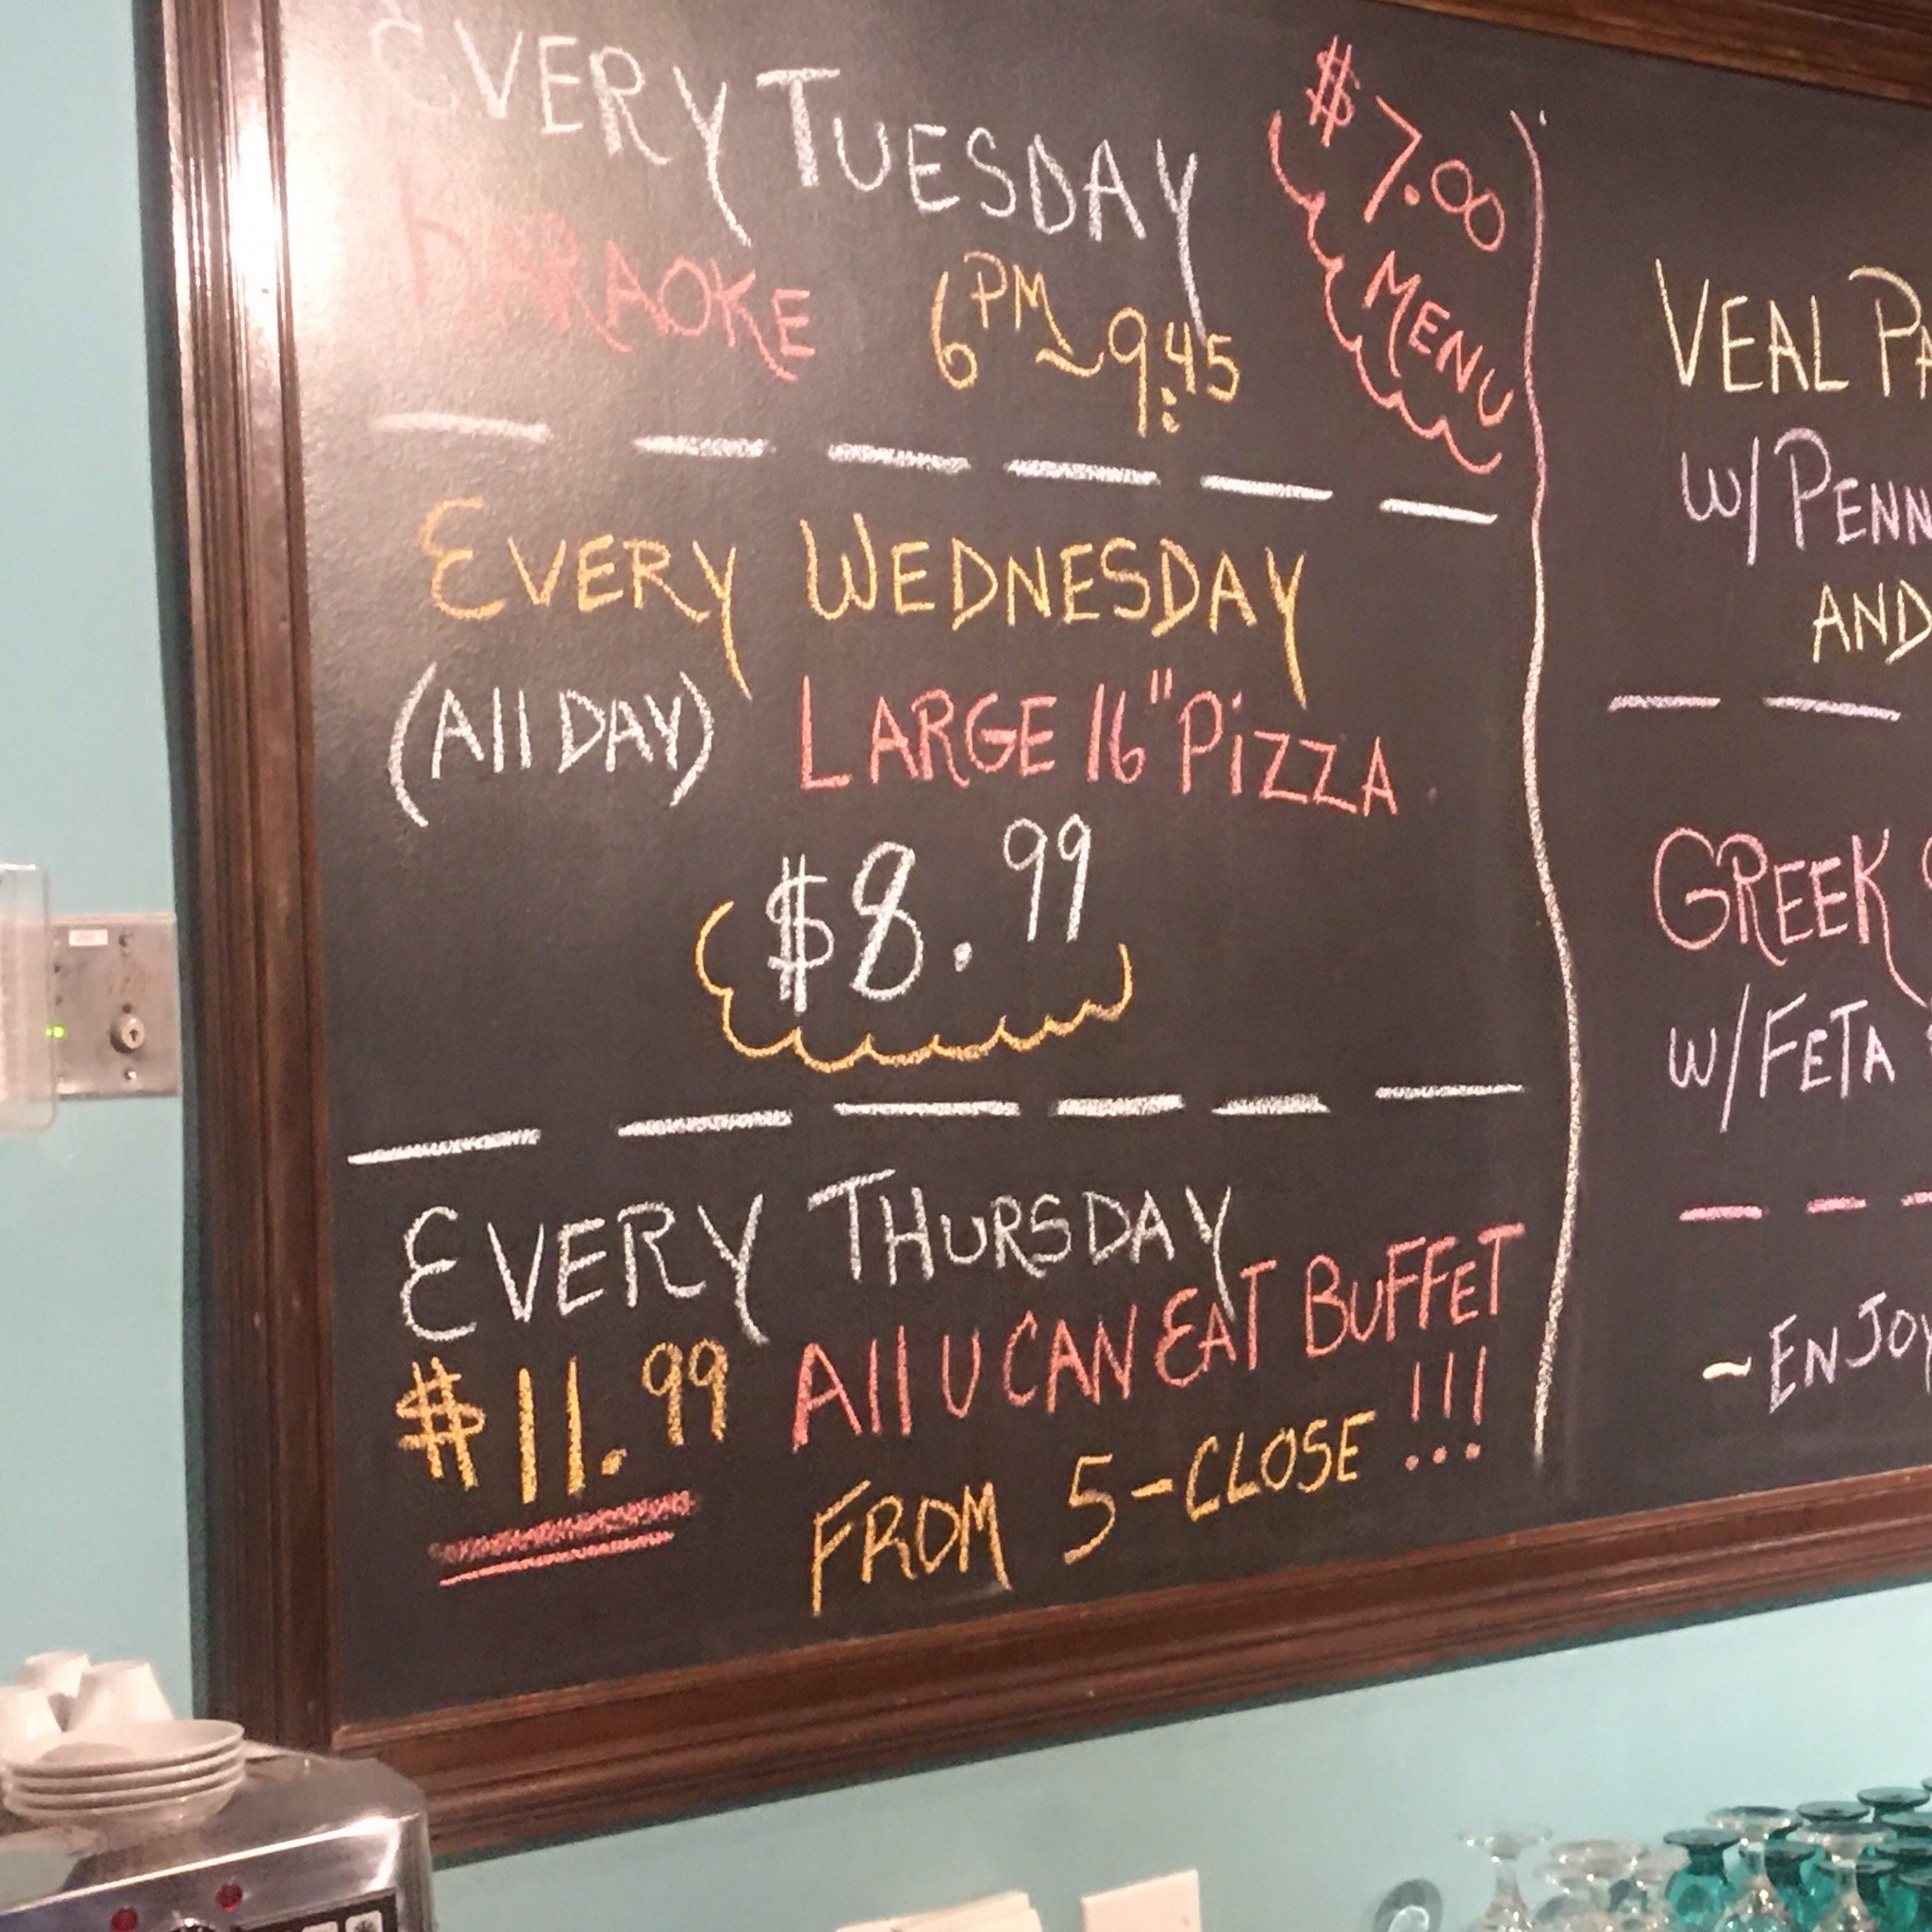 EVERY TUESDAY
KARAOKE 6PM ~ 9:45
$7.00
MENU
EVERY WEDNESDAY
(All DAY) LARGE 16" PiZZA
$8.99
EVERY THURSDAY
$11.99 All U CAN EAT BUFFET
FROM 5-CLOSE !!!
VEAL
W/
AND
GREEK
W/FETA
~ENJOY